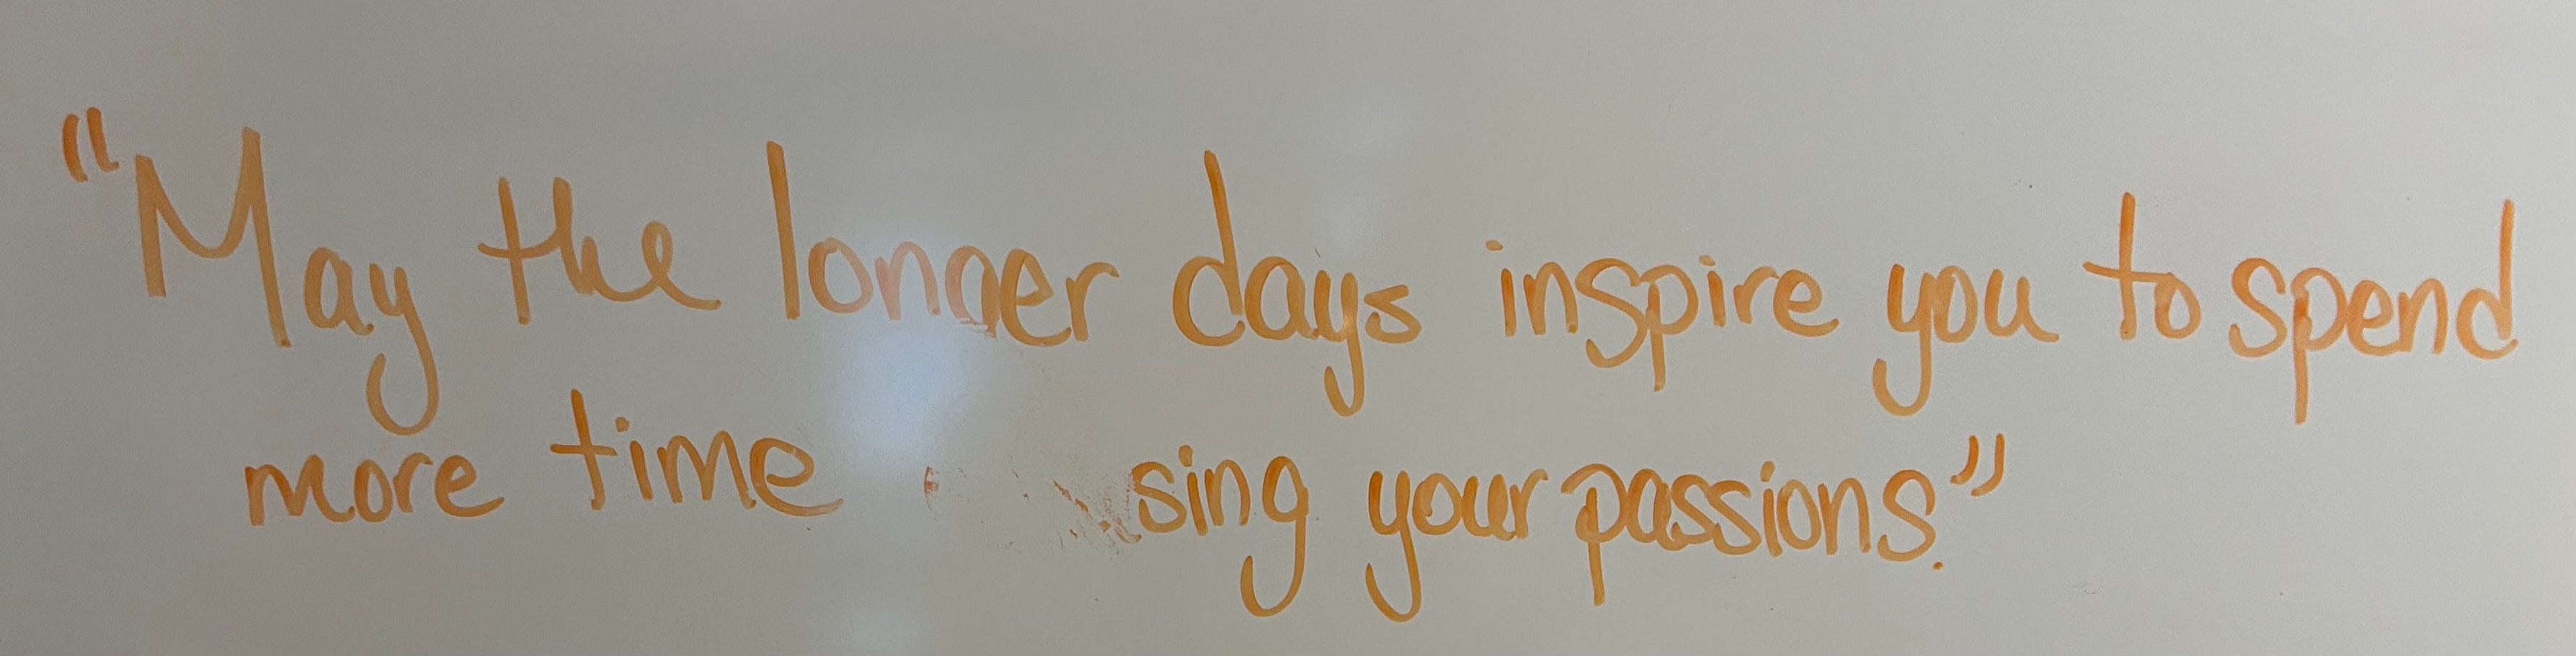 "May the longer days inspire you to spend
more time sing your passions."